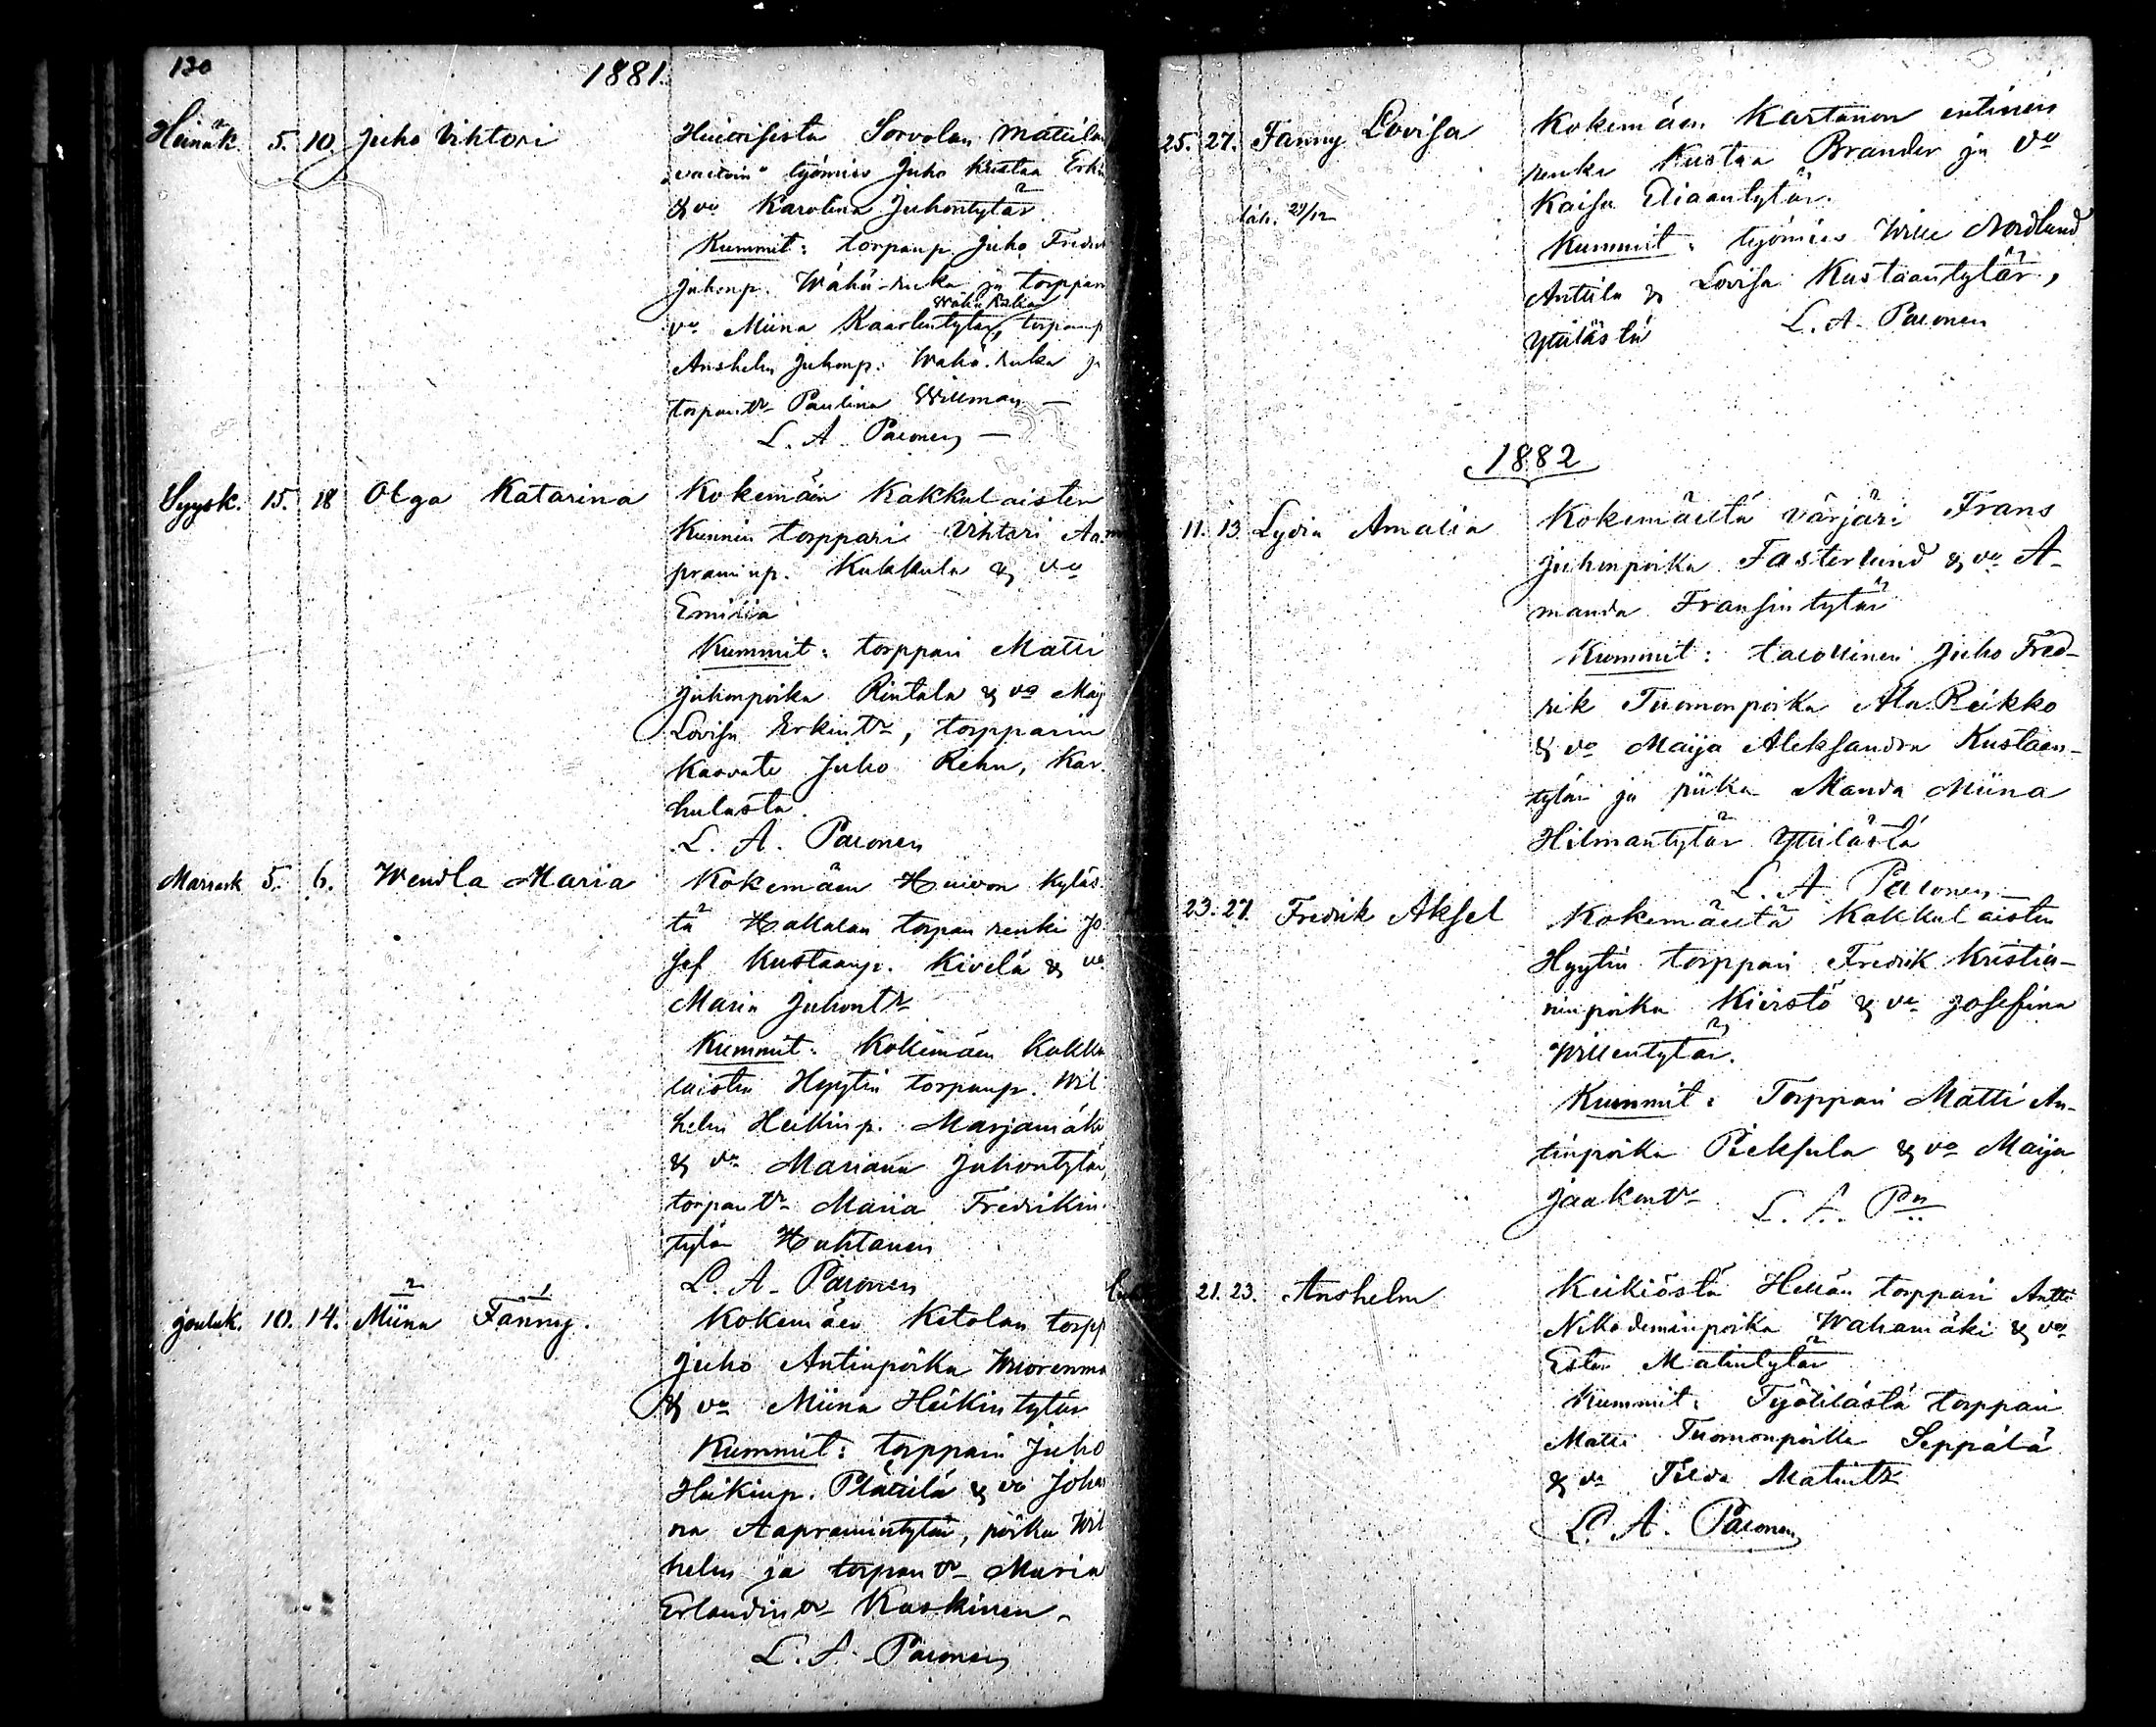 130
1881.
Heinäk. 5. 10 Juho Vihtori
Sorvolan Mattilan
työmies Juho Kustaa
& vo Karolina Juhontytär.
Kummit: torpanp. Juho Fredrik
Juhonp. Wähä-ruka ja torppari
Wähä Ruka
vo Miina Kaarlentytär, torpanp
Anshelm Juhonp. Wähä-ruka ja
torpantr Paulina Willman —
L. A. Palonen —
Syysk. 15. 18 Olga Katarina
Kokemäen Kakkulaisten
Kunnin torppari Vihtori Aa
praminp. Kukkula & vo
Emilia
Kummit: torppari Matti
Juhonpoika Rintala & vo Maj
Lovisa Erkintr, torpparin
Kasvate Juho Rehn, Kar-
hulasta.
L. A. Palonen
Marrask 5. 6. Wendla Maria
Kokemäen kyläs-
tä Hakalan torpan renki Jo-
sef Kustaanp. Kivelä & vo
Maria Juhontr
Kummit: Kokemäen Kakku
laisten Hyytin torpanp. Wil
helm Heikinp. Marjamäki
& vo Mariana Juhontytär,
torpantr Maria Fredrikin-
tytär Huhtanen
L. A. Palonen
2 1
Jouluk. 10. 14. Miina Fanny.
Kokemäen Ketolan torpp
Juho Antinpoika Wuorenma
& vo Miina Heikintytär
Kummit: torppari Juho
Heikinp. Plättilä & vo Johan
na Aapramintytär, poika Wil
helm ja torpantr Maria
Erlandintr Koskinen.
L. A. Palonen
25. 27. Fanny Lovisa
29/12
Kokemäen Kartanon entinen
renki Kustaa Brander ja vo
Kaisa Eliaantytär.
Kummit: työmies Wille Nordlund
Anttila & Lovisa Kustaantytär,
Yttilästä
L. A. Palonen
1882
11. 13 Lydia Amalia
Kokemäeltä värjäri Frans
Juhonpoika Fasterlund & vo A-
manda Fransintytär
Kummit: talollinen Juho Fred-
rik Tuomonpoika Ala Reikko
& vo Maija Aleksandra Kustaan-
tytär ja piika Manda Miina
Hilmantytär Yttilästä
L. A. Palonen —
23. 27. Fredrik Aksel
Kokemäeltä Kakkulaisten
Hyytin torppari Fredrik Kristia-
ninpoika Kiviistö & vo Josefina
Willentytär.
Kummit: Torppari Matti An-
tinpoika Pieksula & vo Maija
Jaakontr
L. A. Pn
21. 23. Anshelm
Keikiöstä Hellän torppari Antti
Nikodeminpoika Wahamäki & vo
Ester Matintytär
Kummit: torppari
Matti Tuomonpoika Seppälä
& vo Tilda Matintr
L. A. Palonen